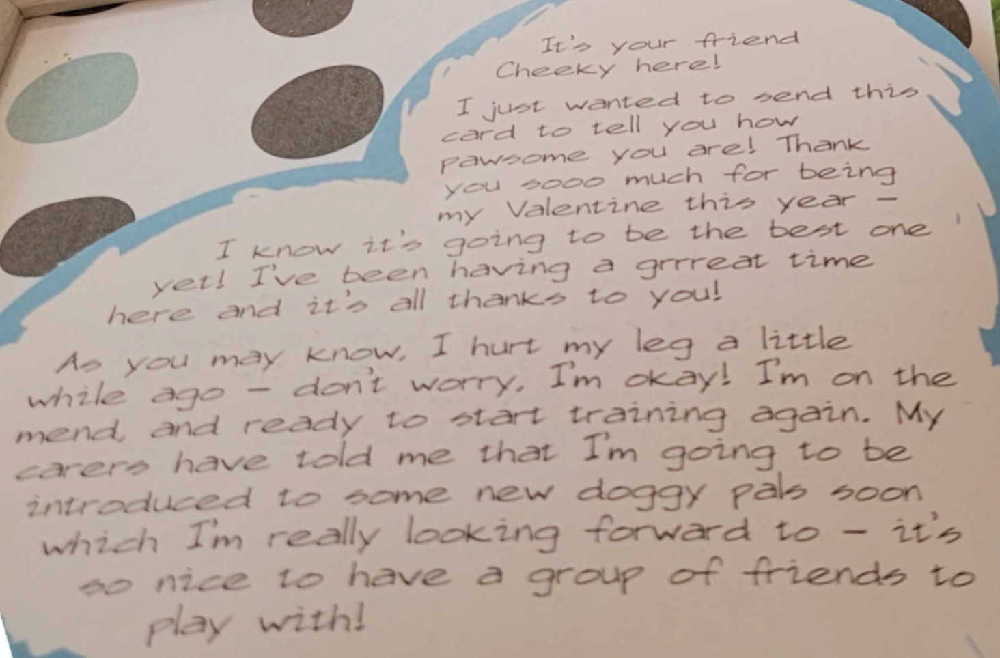 It's your friend
Cheeky here!
I just wanted to send this
card to tell you how
pawsome you are! Thank
you sooo much for being
my Valentine this year -
I know it's going to be the best one
yet! I've been having a grrreat time
here and it's all thanks to you!
As you may know, I hurt my leg a little
while ago - don't worry, I'm okay! I'm on the
mend, and ready to start training again. My
carers have told me that I'm going to be
introduced to some new doggy pals soon
which I'm really looking forward to - it's
so nice to have a group of friends to
play with!